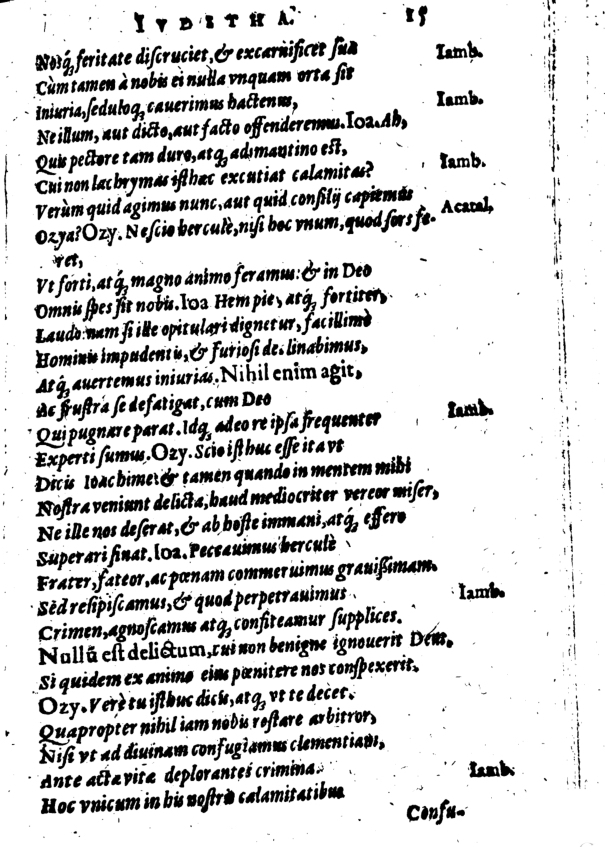 IVDITHA. 15
Nosq́; feritate discruciet, & excarnificet sua Iamb.
Cùm tamen à nobis ei nulla vnquam orta sit
Iniuria, seduloq́; cauerimus hactenus, Iamb.
Ne illum, aut dicto, aut facto offenderemus. Ioa. Ah,
Quis pectore tam duro, atq́; adimantino est,
Cui non lachrymas isthæc excutiat calamitas? Iamb.
Verùm quid agimus nunc, aut quid consilij capiemus
Ozya? Ozy. Nescio herculè, nisi hoc vnum, quod fors fe- Acatal,
ret,
Vt forti, atq́; magno animo feramus: & in Deo
Omnis spes sit nobis. Ioa Hem pie, atq́; fortiter,
Laudo: nam si ille opitulari dignetur, facillimè
Hominis impudentis, & furiosi declinabimus,
Atq́; auertemus iniurias. Nihil enim agit,
Ac frustra se defatigat, cum Deo
Qui pugnare parat. Idq́; adeo re ipsa frequenter Iamb.
Experti sumus. Ozy. Scio isthuc esse ita vt
Dicis Ioachime: & tamen quando in mentem mihi
Nostra veniunt delicta, haud mediocriter vereor miser,
Ne ille nos deserat, & ab hoste immani, atq́; effero
Superari sinat. Ioa. Peccauimus herculè
Frater, fateor, ac pœnam commeruimus grauissimam.
Sèd resipiscamus, & quod perpetrauimus Iamb.
Crimen, agnoscamus atq́; confiteamur supplices.
Nullū est delictum, cui non benigne ignouerit Deus,
Si quidem ex animo eius pœnitere nos conspexerit.
Ozy. Verè tu isthuc dicis, atq́; vt te decet.
Quapropter nihil iam nobis restare arbitror,
Nisi vt ad diuinam confugiamus clementiam,
Ante acta vitæ deplorantes crimina. Iamb.
Hoc vnicum in his nostris calamitatibus
Confu-